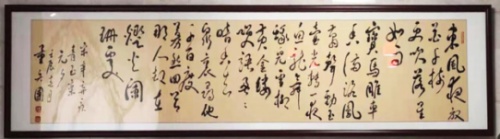 東風夜放
花千樹
更吹落星
如雨
寶馬雕車
香滿路鳳
簫聲動玉
壺光轉一夜
魚龍舞
蛾兒雪柳
黃金縷
笑語盈盈
暗香去眾
裏尋他
千百度
驀然回首
那人卻在
燈火闌
珊處
辛棄疾
青玉案
元夕